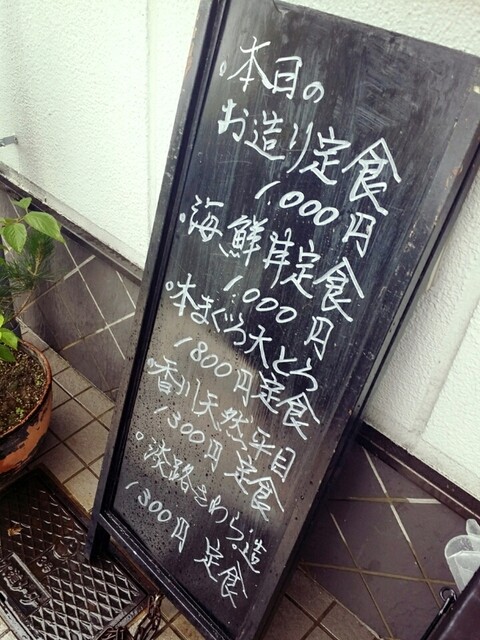 。本日の
お造り定食
1.000円
。海鮮丼定食
1.000円
。本まぐろ大とろ
1800円定食
。香川天然平目
1300円定食
。淡路さわら造
1300円 定食